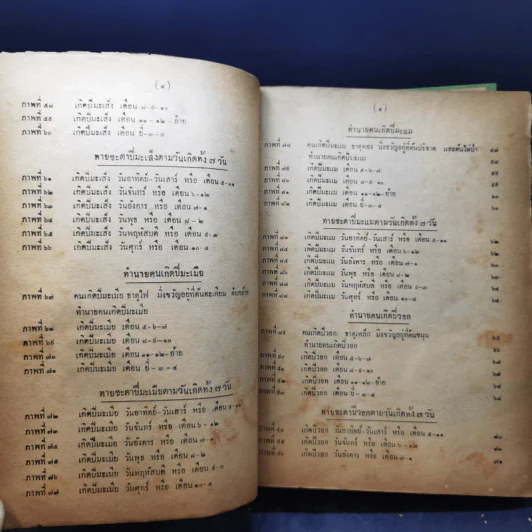 (๔)
ภาพที่ ๕๘ เกิดปีมะเส็ง เดือน ๘-๙-๑๐
ภาพที่ ๕๙ เกิดปีมะเส็ง เดือน ๑๑-๑๒-อ้าย
ภาพที่ ๖๐ เกิดปีมะเส็ง เดือน ยี่-๓-๔
ทายชะตาปีมะเส็งตามวันเกิดทั้ง ๗ วัน
ภาพที่ ๖๑ เกิดปีมะเส็ง วันอาทิตย์-วันเสาร์ หรือ เดือน ๕-๑๑
ภาพที่ ๖๒ เกิดปีมะเส็ง วันจันทร์ หรือ เดือน ๖-๑๒
ภาพที่ ๖๓ เกิดปีมะเส็ง วันอังคาร หรือ เดือน ๗-๑
ภาพที่ ๖๔ เกิดปีมะเส็ง วันพุธ หรือ เดือน ๘-๒
ภาพที่ ๖๕ เกิดปีมะเส็ง วันพฤหัสบดี หรือ เดือน ๙-๓
ภาพที่ ๖๖ เกิดปีมะเส็ง วันศุกร์ หรือ เดือน ๑๐-๔
ทำนายคนเกิดปีมะเมีย
ภาพที่ ๖๗ คนเกิดปีมะเมีย ธาตุไฟ มิ่งขวัญอยู่ที่ต้นตะเคียน
ทำนายคนเกิดปีมะเมีย
ภาพที่ ๖๘ เกิดปีมะเมีย เดือน ๕-๖-๗
ภาพที่ ๖๙ เกิดปีมะเมีย เดือน ๘-๙-๑๐
ภาพที่ ๗๐ เกิดปีมะเมีย เดือน ๑๑-๑๒-อ้าย
ภาพที่ ๗๑ เกิดปีมะเมีย เดือน ยี่-๓-๔
ทายชะตาปีมะเมียตามวันเกิดทั้ง ๗ วัน
ภาพที่ ๗๒ เกิดปีมะเมีย วันอาทิตย์-วันเสาร์ หรือ เดือน ๕-๑๑
ภาพที่ ๗๓ เกิดปีมะเมีย วันจันทร์ หรือ เดือน ๖-๑๒
ภาพที่ ๗๔ เกิดปีมะเมีย วันอังคาร หรือ เดือน ๗-๑
ภาพที่ ๗๕ เกิดปีมะเมีย วันพุธ หรือ เดือน ๘-๒
ภาพที่ ๗๖ เกิดปีมะเมีย วันพฤหัสบดี หรือ เดือน ๙-๓
ภาพที่ ๗๗ เกิดปีมะเมีย วันศุกร์ หรือ เดือน ๑๐-๔
ทำนายคนเกิดปีมะแม
คนเกิดปีมะแม ธาตุทอง มิ่งขวัญอยู่ที่ต้นปาริชาต และต้นไผ่ป่า
ทำนายคนเกิดปีมะแม
เกิดปีมะแม เดือน ๕-๖-๗
เกิดปีมะแม เดือน ๘-๙-๑๐
เกิดปีมะแม เดือน ๑๑-๑๒-อ้าย
เกิดปีมะแม เดือน ยี่-๓-๔
ทายชะตาปีมะแมตามวันเกิดทั้ง ๗ วัน
เกิดปีมะแม วันอาทิตย์-วันเสาร์ หรือ เดือน ๕-๑๑
เกิดปีมะแม วันจันทร์ หรือ เดือน ๖-๑๒
เกิดปีมะแม วันอังคาร หรือ เดือน ๗-๑
เกิดปีมะแม วันพุธ หรือ เดือน ๘-๒
เกิดปีมะแม วันพฤหัสบดี หรือ เดือน ๙-๓
เกิดปีมะแม วันศุกร์ หรือ เดือน ๑๐-๔
ทำนายคนเกิดปีวอก
คนเกิดปีวอก ธาตุเหล็ก มิ่งขวัญอยู่ที่ต้นขนุน
ทำนายคนเกิดปีวอก
เกิดปีวอก เดือน ๕-๖-๗
เกิดปีวอก เดือน ๘-๙-๑๐
เกิดปีวอก เดือน ๑๑-๑๒-อ้าย
เกิดปีวอก เดือน ยี่-๓-๔
ทายชะตาปีวอกตามวันเกิดทั้ง ๗ วัน
เกิดปีวอก วันอาทิตย์-วันเสาร์ หรือ เดือน ๕-๑๑
เกิดปีวอก วันจันทร์ หรือ เดือน ๖-๑๒
เกิดปีวอก วันอังคาร หรือ เดือน ๗-๑